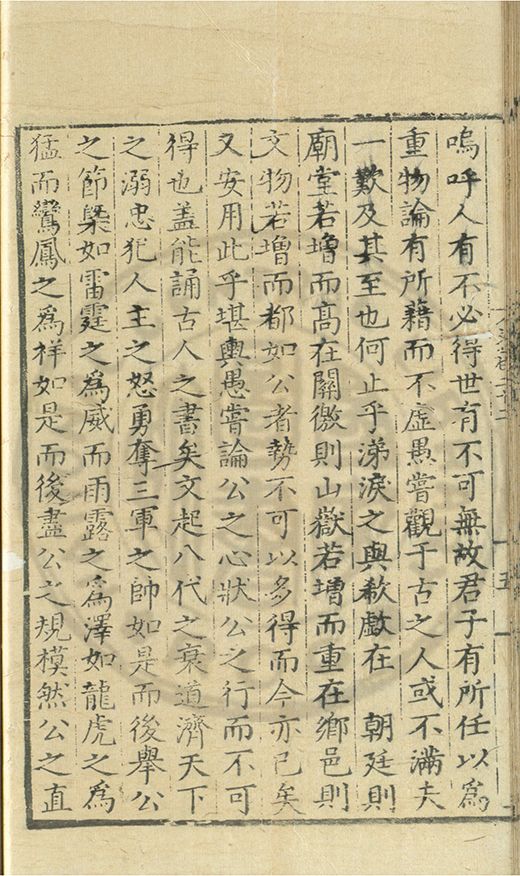 嗚呼人有不必得世有不可無故君子有所任以爲
重物論有所藉而不虛愚嘗觀于古之人或不滿夫
一歎及其至也何止乎涕淚之與欷歔在　朝廷則
廟堂若增而高在關徼則山嶽若增而重在鄉邑則
文物若增而都如公者勢不可以多得而今亦已矣
又安用此乎堪輿愚嘗論公之心狀公之行而不可
得也盖能誦古人之書矣文起八代之衰道濟天下
之溺忠犯人主之怒勇奪三軍之帥如是而後舉公
之節槩如雷霆之爲威而雨露之爲澤如龍虎之爲
猛而鸞鳳之爲祥如是而後盡公之規模然公之直